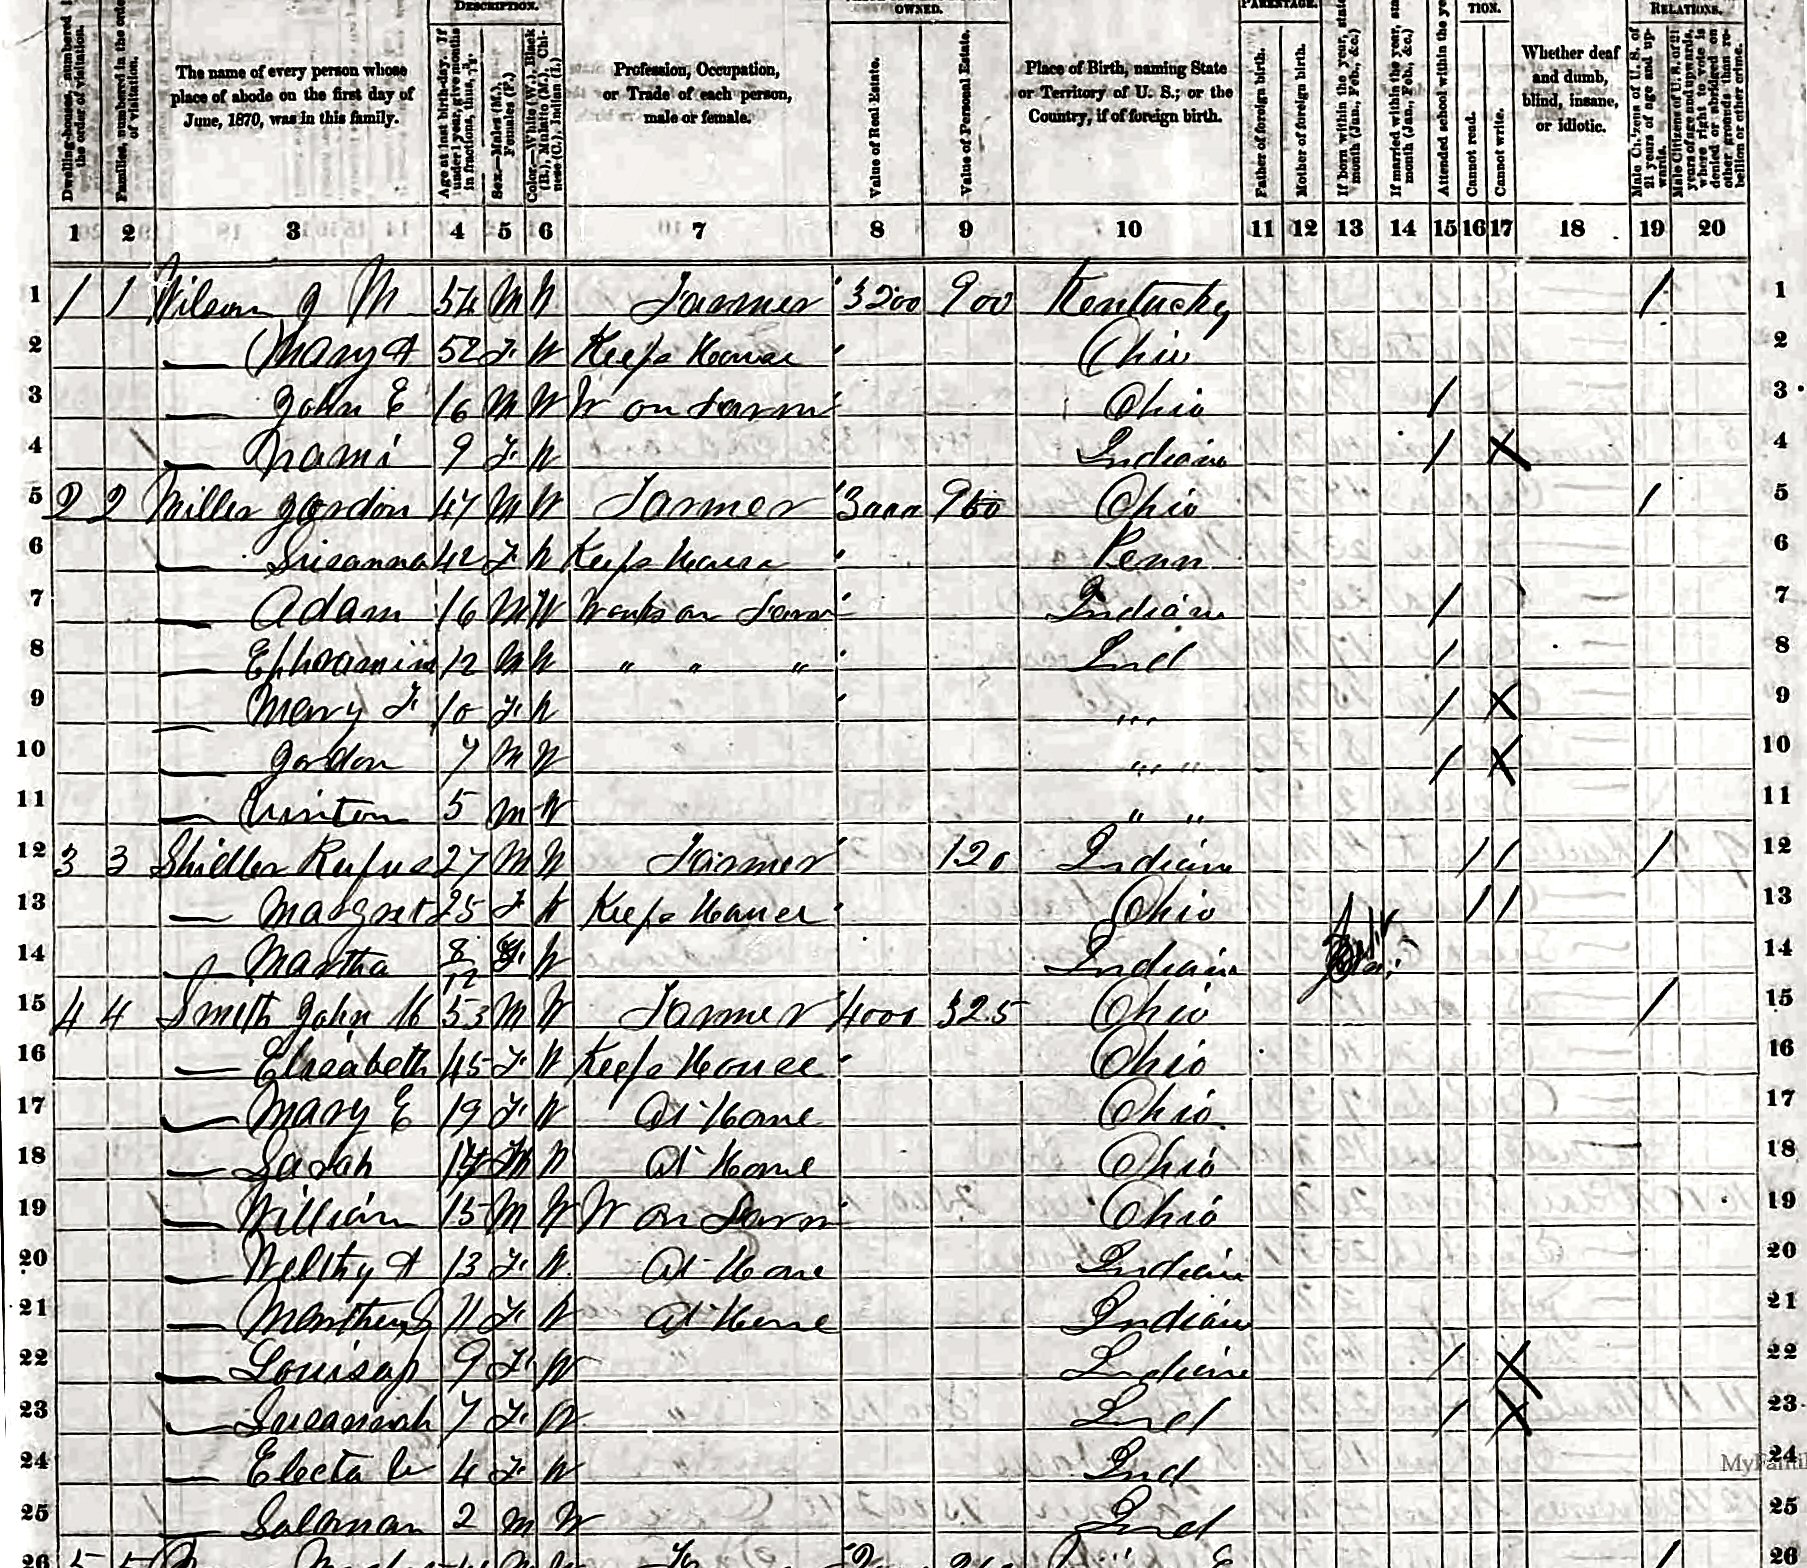 DESCRIPTION.
OWNED.
PARENTAGE.
TION.
RELATIONS.
Dwelling-houses, numbered in the order of visitation.
Families, numbered in the order of visitation.
The name of every person whose place of abode on the first day of June, 1870, was in this family.
Age at last birth-day. If under 1 year, give months in fractions, thus, 3/12.
Sex.—Males (M.), Females (F.)
Color.—White (W.), Black (B.), Mulatto (M.), Chinese (C.), Indian (I.)
Profession, Occupation, or Trade of each person, male or female.
Value of Real Estate.
Value of Personal Estate.
Place of Birth, naming State or Territory of U. S.; or the Country, if of foreign birth.
Father of foreign birth.
Mother of foreign birth.
If born within the year, state month (Jan., Feb., &c.)
If married within the year, state month (Jan., Feb., &c.)
Attended school within the year
Cannot read.
Cannot write.
Whether deaf and dumb, blind, insane, or idiotic.
Male Citizens of U. S. of 21 years of age and upwards.
Male Citizens of U. S. of 21 years of age and upwards, where right to vote is denied or abridged on other grounds than rebellion or other crime.
1 2 3 4 5 6 7 8 9 10 11 12 13 14 15 16 17 18 19 20
1 1 1 Wilson J M 54 M W Farmer 3200 900 Kentucky / 1
2 — Mary A 52 F W Keeps House Ohio 2
3 — John E 16 M W W on Farm Ohio / 3
4 — Naomi 9 F W Indiana / X 4
5 2 2 Miller Gordon 47 M W Farmer 3000 Ohio / 5
6 — Susanna 42 F W Keeps House Penn 6
7 — Adam 16 M W Works on Farm Indiana / 7
8 — 12 M W " " " Ind / 8
9 — Mary F 10 F W " / X 9
10 — Gordon 7 M W " " / X 10
11 — 5 M W " " 11
12 3 3 Shidler Rufus 27 M W Farmer 120 Indiana / / / 12
13 — Margret 25 F W Keeps House Ohio / / 13
14 — Martha 8/12 F W Indiana 14
15 4 4 Smith John 53 M W Farmer 4000 325 Ohio / 15
16 — Elisabeth 45 F W Keeps House Ohio 16
17 — Mary E 19 F W At Home Ohio 17
18 — Sarah W At Home Ohio 18
19 — William 15 M W W on Farm Ohio 19
20 — Welthy A 13 F W At Home Indiana 20
21 — 11 F W At Home Indiana 21
22 — 9 F W Indiana / X 22
23 — Susannah 7 F W Ind / X 23
24 — Electa 4 F W Ind 24
25 — Saloman 2 M W Ind 25
26 5 5 / 26